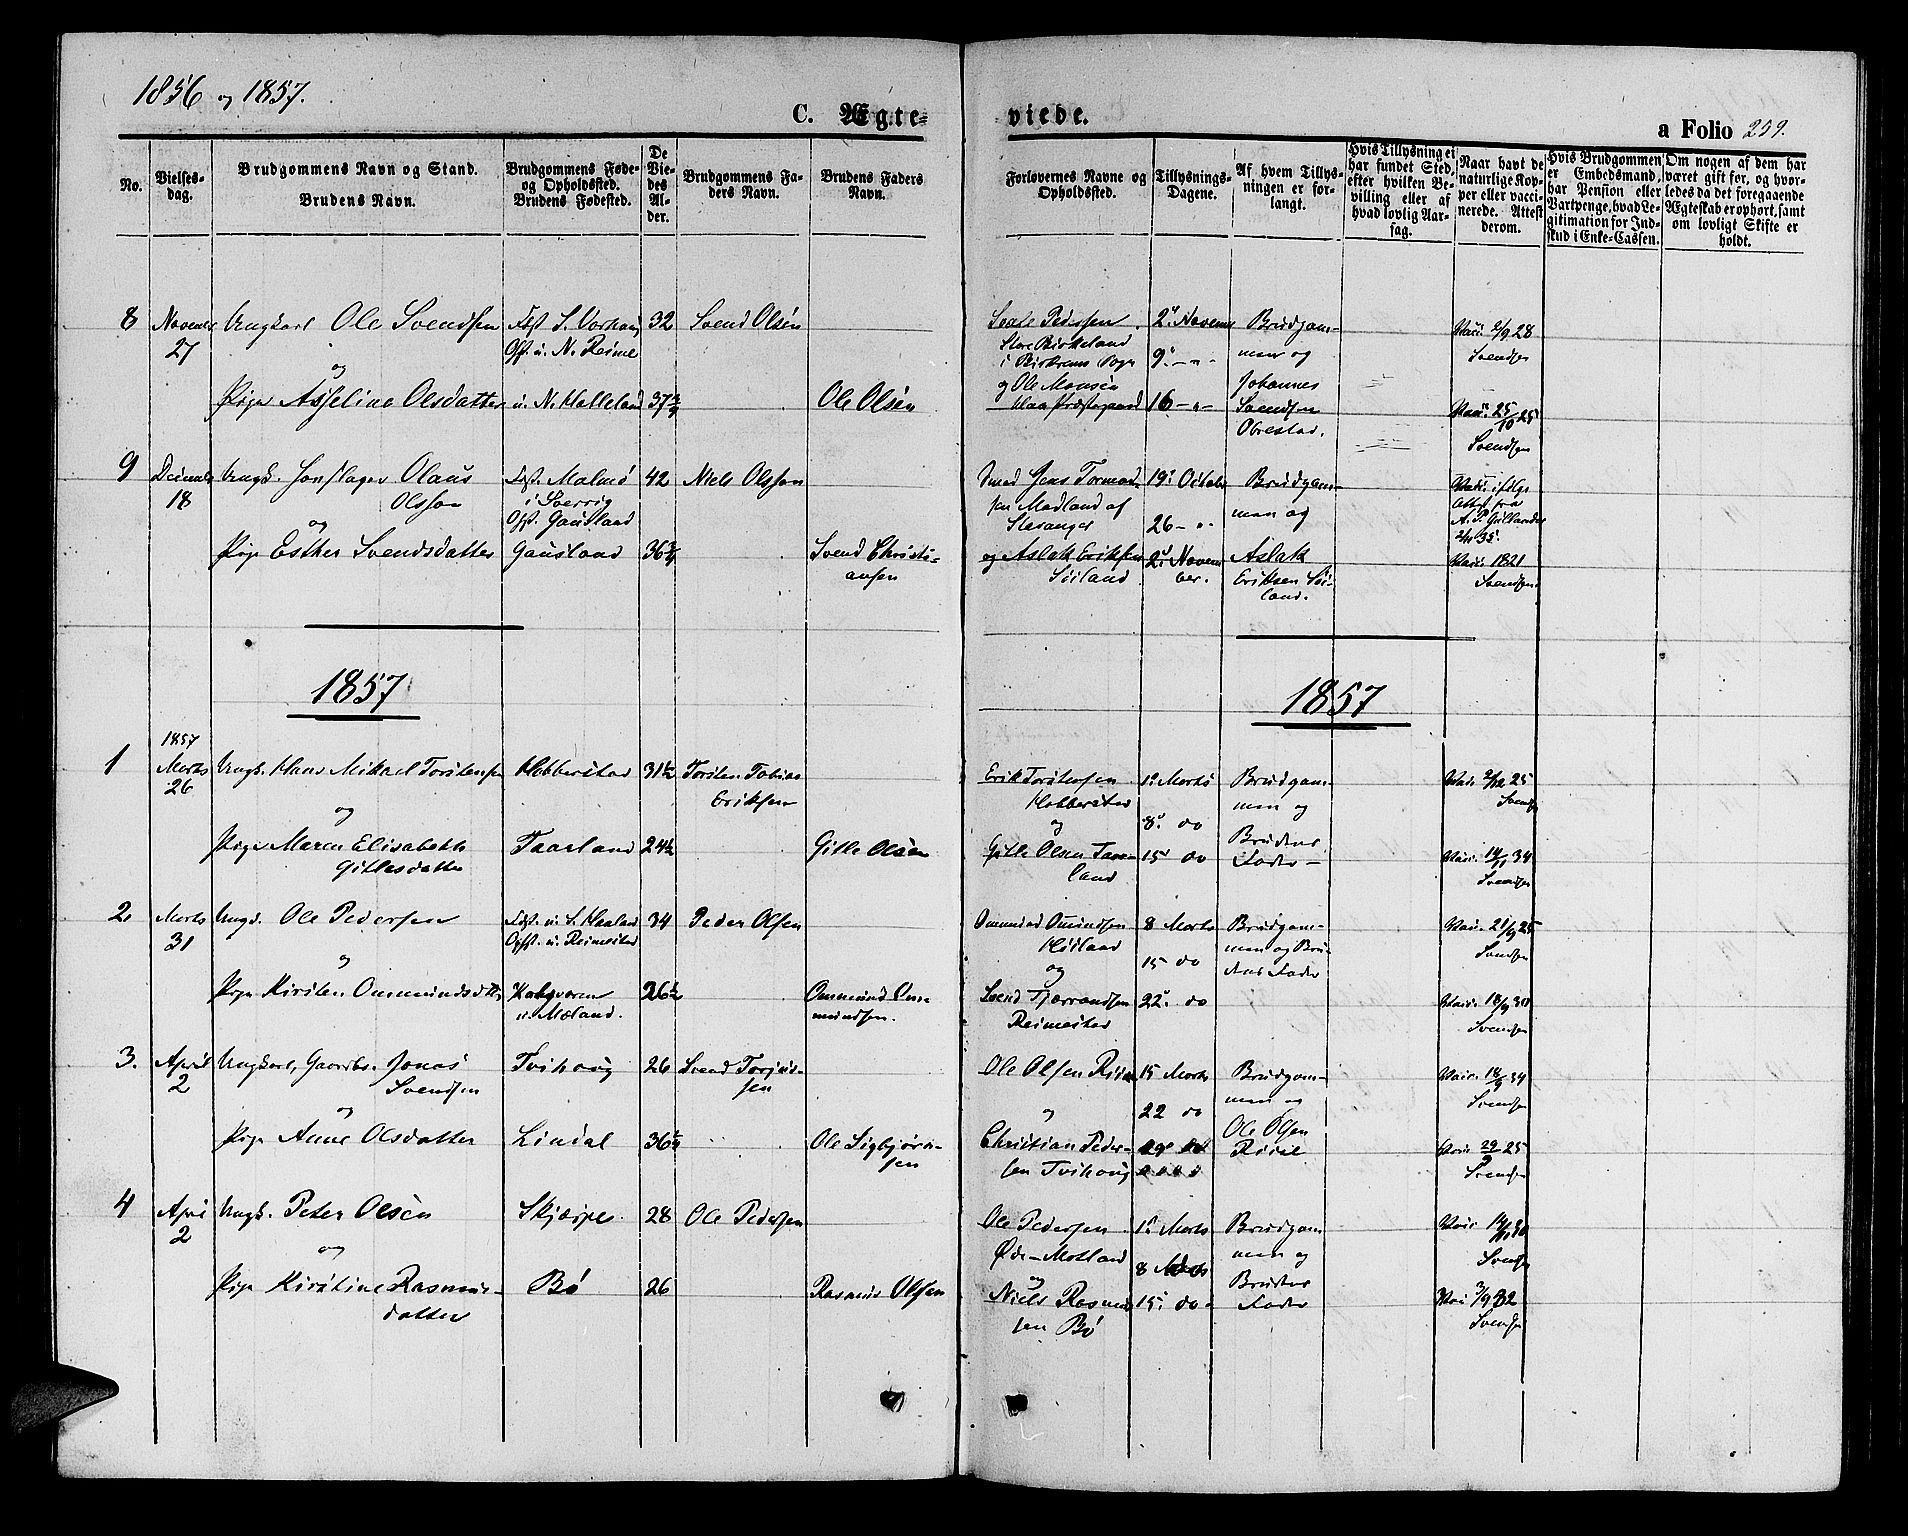 1856 og 1857.
C. Ægte-
viede.
a Folio 259.
No.
Vielses-
dag.
Brudgommens Navn og Stand.
Brudens Navn.
Brudgommens Føde-
og Opholdssted.
Brudens Fødested.
De
Vie-
des
Al-
der.
Brudgommens Fa-
ders Navn.
Brudens Faders
Navn.
Forlovernes Navne og
Opholdssted.
Tillysnings-
Dagene.
Af hvem Tillys-
ningen er for-
langt.
Hvis Tillysning ei
har fundet Sted,
efter hvilken Be-
villing eller af
hvad lovlig Aar-
sag.
Naar havt de
naturlige Kop-
per eller vacci-
nerede. Attest
derom.
Hvis Brudgommen
er Embedsmand,
har Pension eller
Vartpenge, hvad Le-
gitimation for Ind-
skud i Enke-Cassen.
Om nogen af dem har
været gift før, og hvor-
ledes da det foregaaende
Ægteskab er ophørt, samt
om lovligt Skifte er
holdt.
8
27
Ungkarl Ole Svendsen
og
Pige Asseline Olsdatter
N. Reime
u. N. Halleland
32
37 3/4
Svend Olsén
Ole Olsén
Pedersen
Store Birkeland
i Birkrems Sogn
og Ole Monsén
Klaa Præstegaard
9
16
Brudgom-
men og
Johannes
Svendsen
Obrestad.
28
Svendsen
Vacc. 25/10 25
Svendsen
9
18
Olaus
Olsson
og
Pige Esther Svendsdatter
Malmö
i Sverrig
Gausland
Gausland
42
36 3/4
Niels Olsson
Svend Christi-
ansen
Smed Jens Tormod-
sen Madland af
Stavanger
og Aslak Eriksen
Söiland
19. Octobr
26
2. Novem
ber.
Brudgom-
men og
Aslak
Eriksen Söi-
land.
Vacc. ifölge
Attest fra
35
Vacc. 1821
Svendsen
1857
1857
1
1857
Marts
26
Ungk. Hans Mikael Torstensen
og
Pige Maren Elisabeth
Gitlesdatter
Hobberstad
Taarland
31 1/2
24 1/2
Torsten Tobias
Eriksen
Gitle Olsén
Erik Torstensen
Hobberstad
og
Gitle Olsen Taar-
land
1. Marts
8. do
15 do
Brudgom-
men og
Brudens
Fader
Vacc. 2/12 25
Svendsen
Vacc. 14/11 34
Svendsen
2.
Marts
31
Ungk. Ole Pedersen
og
Pige Kirsten Ommundsdtr
u. Reimestad
u. Mæland.
34
26 1/2
Peder Olsen
Ommund Om-
mundsen.
Ommund Omundsen
Höiland
og
Svend Tjærrandsen
Reimestad
8 Marts
15 do
22. do
Brudgom-
men og Bru-
dens Fader
Vacc. 21/9 25
Svendsen
Vacc. 18/9 30
Svendsen
3.
April
2
Ungkarl, Gaardbr. Jonas
Svendsen
og
Pige Anne Olsdatter
Tvihoug
Lindal
26
36 1/4
Svend Torjus-
sen
Ole Sigbjörn-
sen
Ole Olsen
og
Christian Peder-
sen Tvihoug
15 Marts
22 do
Brudgom-
men og
Ole Olsen
Vacc. 18/9 34
Svendsen
Vacc. 29/9 25
Svendsen
4
Apri
2
Ungk. Peter Olsén
og
Pige Kirstine Rasmus-
datter
Skjærpe
Bö
28
26
Ole Pedersen
Rasmus Olsen
Ole Pedersen
Øde-Motland
og
Niels Rasmus
sen Bö
1. Marts
8 Marts
15. do
Brudgom
men og
Brudens
Fader
Vacc.
Svendsen
Vacc 3/9 32
Svendsen